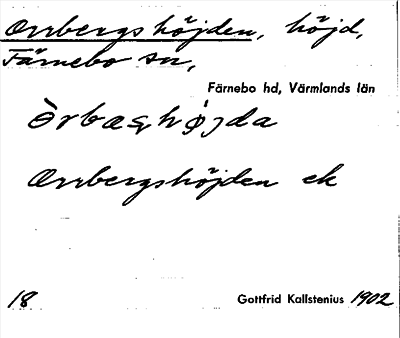 Orrbergshöjden, höjd,
Färnebo sn,
Färnebo hd, Värmlands län
Orrbergshöjden ek
18 Gottfrid Kallstenius 1902